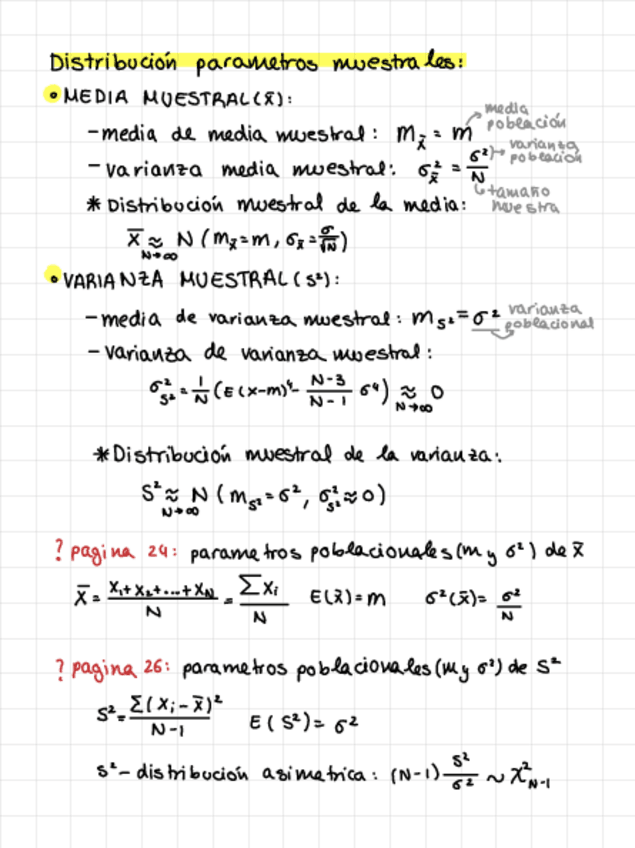 Distribución parametros muestrales:
• MEDIA MUESTRAL (x̄):
- media de media muestral: m_x̄ = m → media población
- varianza media muestral: σ²_x̄ = σ²/N → varianza población
↳ tamaño muestra
* Distribución muestral de la media:
x̄ ≈ N (m_x̄ = m, σ_x̄ = σ/√N)
N→∞
• VARIANZA MUESTRAL (s²):
- media de varianza muestral: m_s² = σ² varianza poblacional
- varianza de varianza muestral:
σ²_s² = 1/N (E(x-m)⁴ - N-3/N-1 σ⁴) ≈ 0
N→∞
* Distribución muestral de la varianza:
S² ≈ N (m_s² = σ², σ²_s² ≈ 0)
N→∞
? pagina 24: parametros poblacionales (m y σ²) de x̄
x̄ = x₁+x₂+...+x_N/N = ∑xᵢ/N E(x̄) = m σ²(x̄) = σ²/N
? pagina 26: parametros poblacionales (m y σ²) de S²
S² = ∑(xᵢ - x̄)²/N-1 E(S²) = σ²
s² - distribución asimetrica: (N-1) s²/σ² ~ χ²_N-1